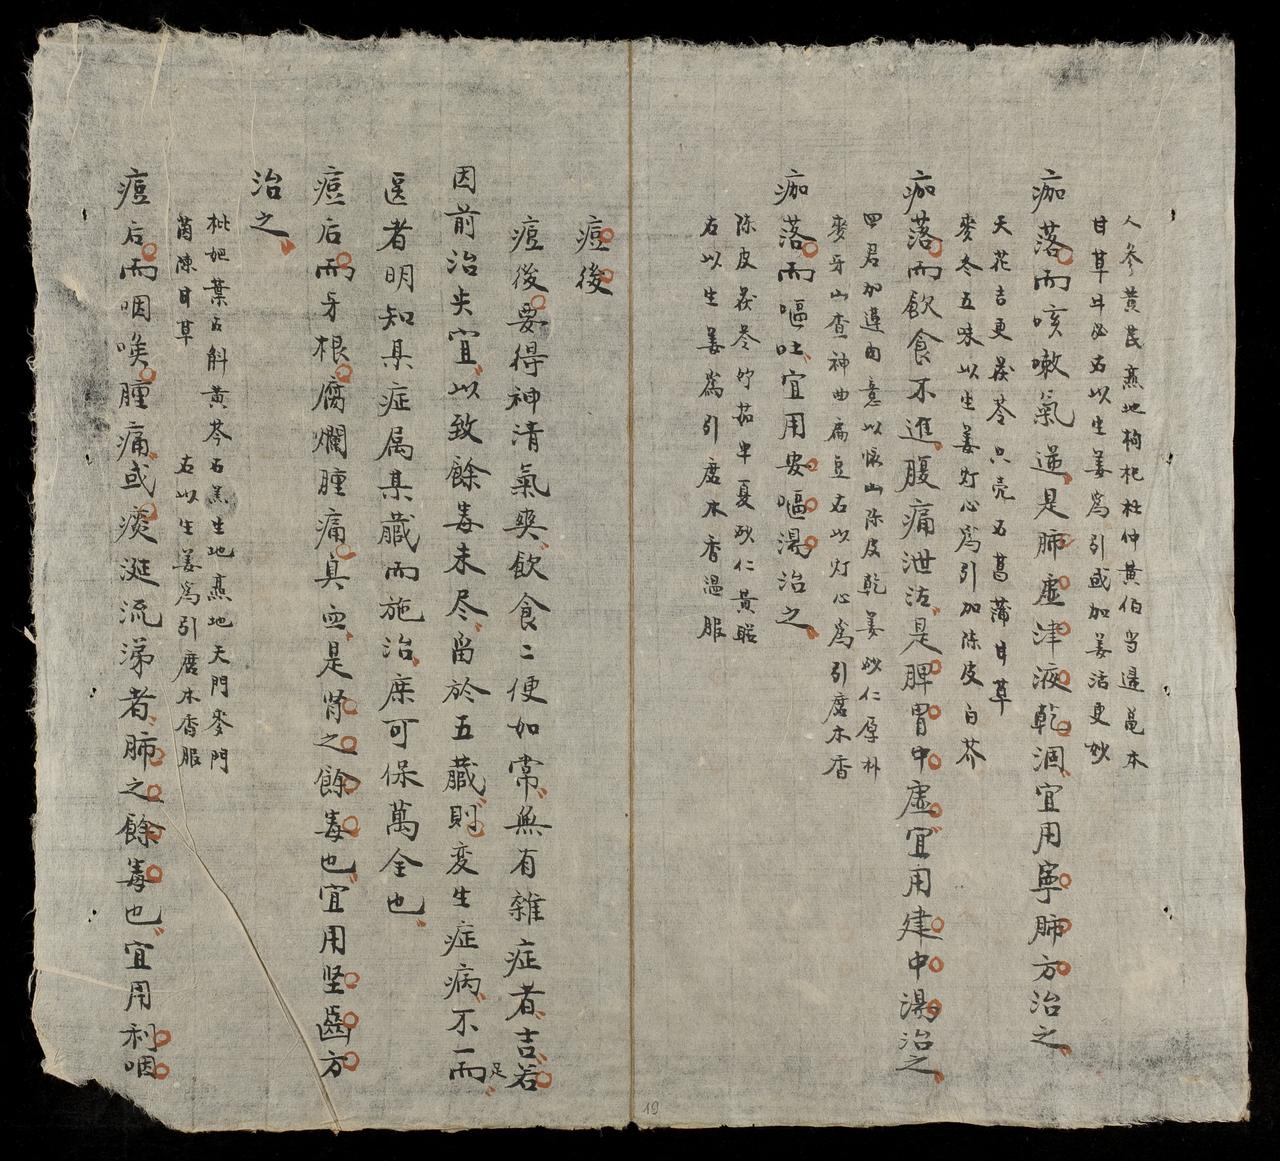 人參黃芪熟地枸杞杜仲黃伯当逯蒐本
甘草斗必右以生姜為引或加姜活更妙
痂落而咳嗽氣逆是肺虛津液乾涸宜用寧肺方治之
天花吉更茯苓只壳石菖蒲甘草
麥冬五味以生姜灯心為引加陈皮白芥
痂落而飲食不進腹痛泄沽是脾胃中虛宜用建中湯治之
四君加蓮肉意以懷山陈皮乾姜砂仁厚朴
麥牙山查神曲扁豆右以灯心為引磨木香
痂落而嘔吐宜用安嘔湯治之
陈皮茯苓竹茹半夏砂仁黃
右以生姜為引磨木香温服
痘後
痘後要得神清氣爽飲食二便如常無有雜症者吉若
因前治失宜以致餘毒未尽留於五臟則变生症病不一而足
医者明知某症属某臟而施治庶可保萬全也
痘后而牙根腐爛腫痛真血是肾之餘毒也宜用坚齒方
治之
枇杷葉石斛黃芩石羔生地熟地天門麥門
茵陳甘草 右以生姜為引磨木香服
痘后而咽喉腫痛或痰涎流涕者肺之餘毒也宜用利咽
19